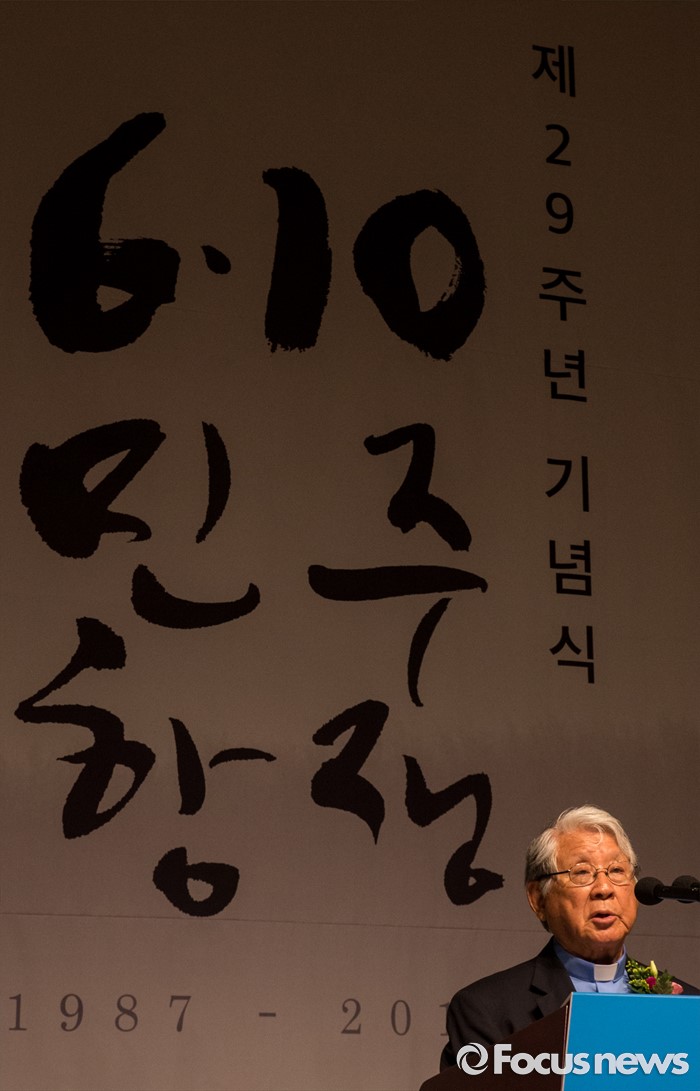 제29주년 기념식
6·10
민주
항쟁
1987 - 201
Focusnews